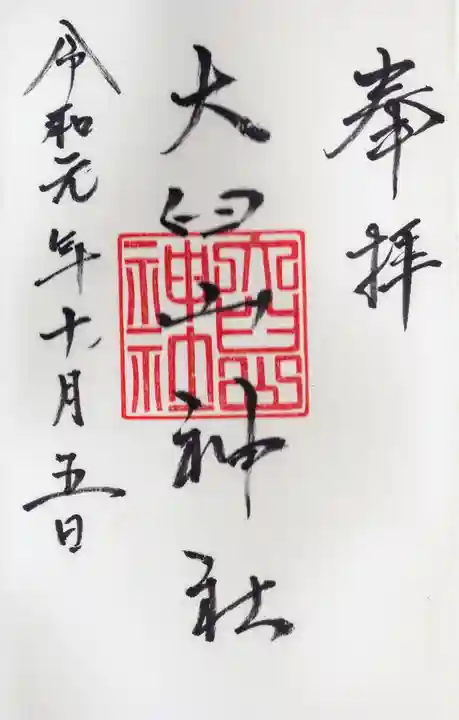 奉拝
大臼山神社
令和元年十月五日
大臼山
神社